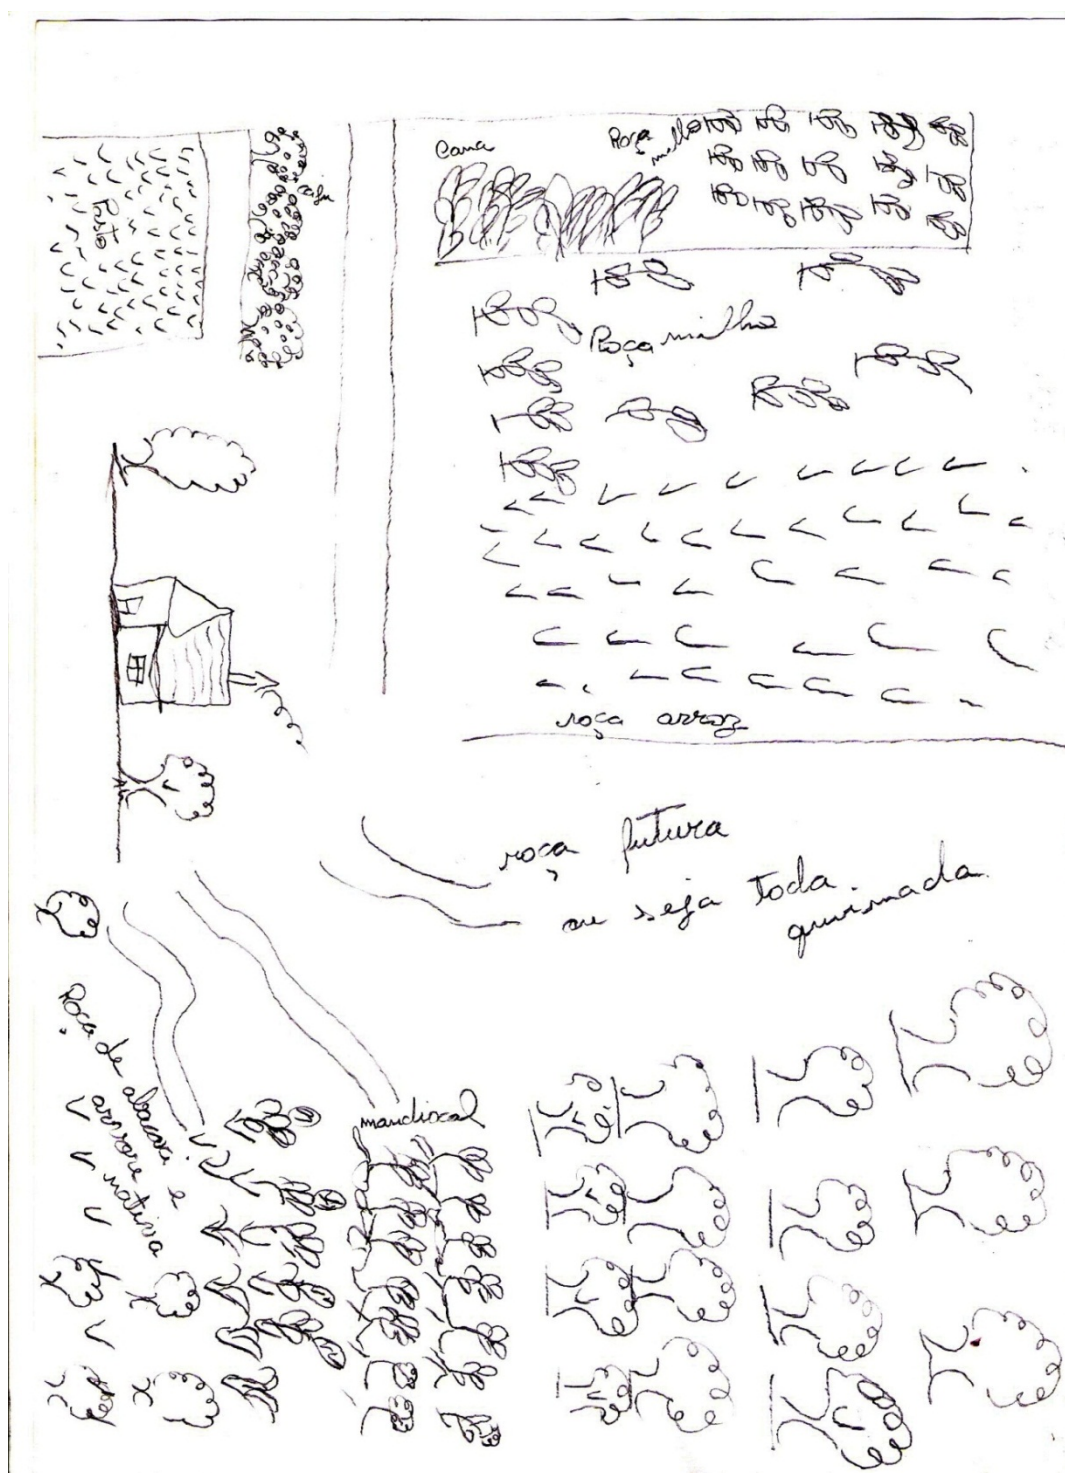 Cana
Roça
milho
Pasto
Roça milho
roça arroz
roça futura
ou seja toda
queimada.
Roça de abacaxi e
arvore nativa
mandiocal